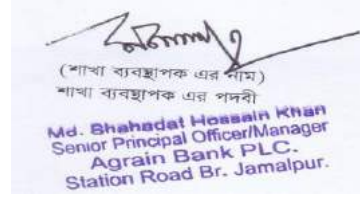 (শাখা ব্যবস্থাপক এর নাম)
শাখা ব্যবস্থাপক এর পদবী
Md. Shahadat Hossain Khan
Senior Principal Officer/Manager
Agrain Bank PLC.
Station Road Br. Jamalpur.